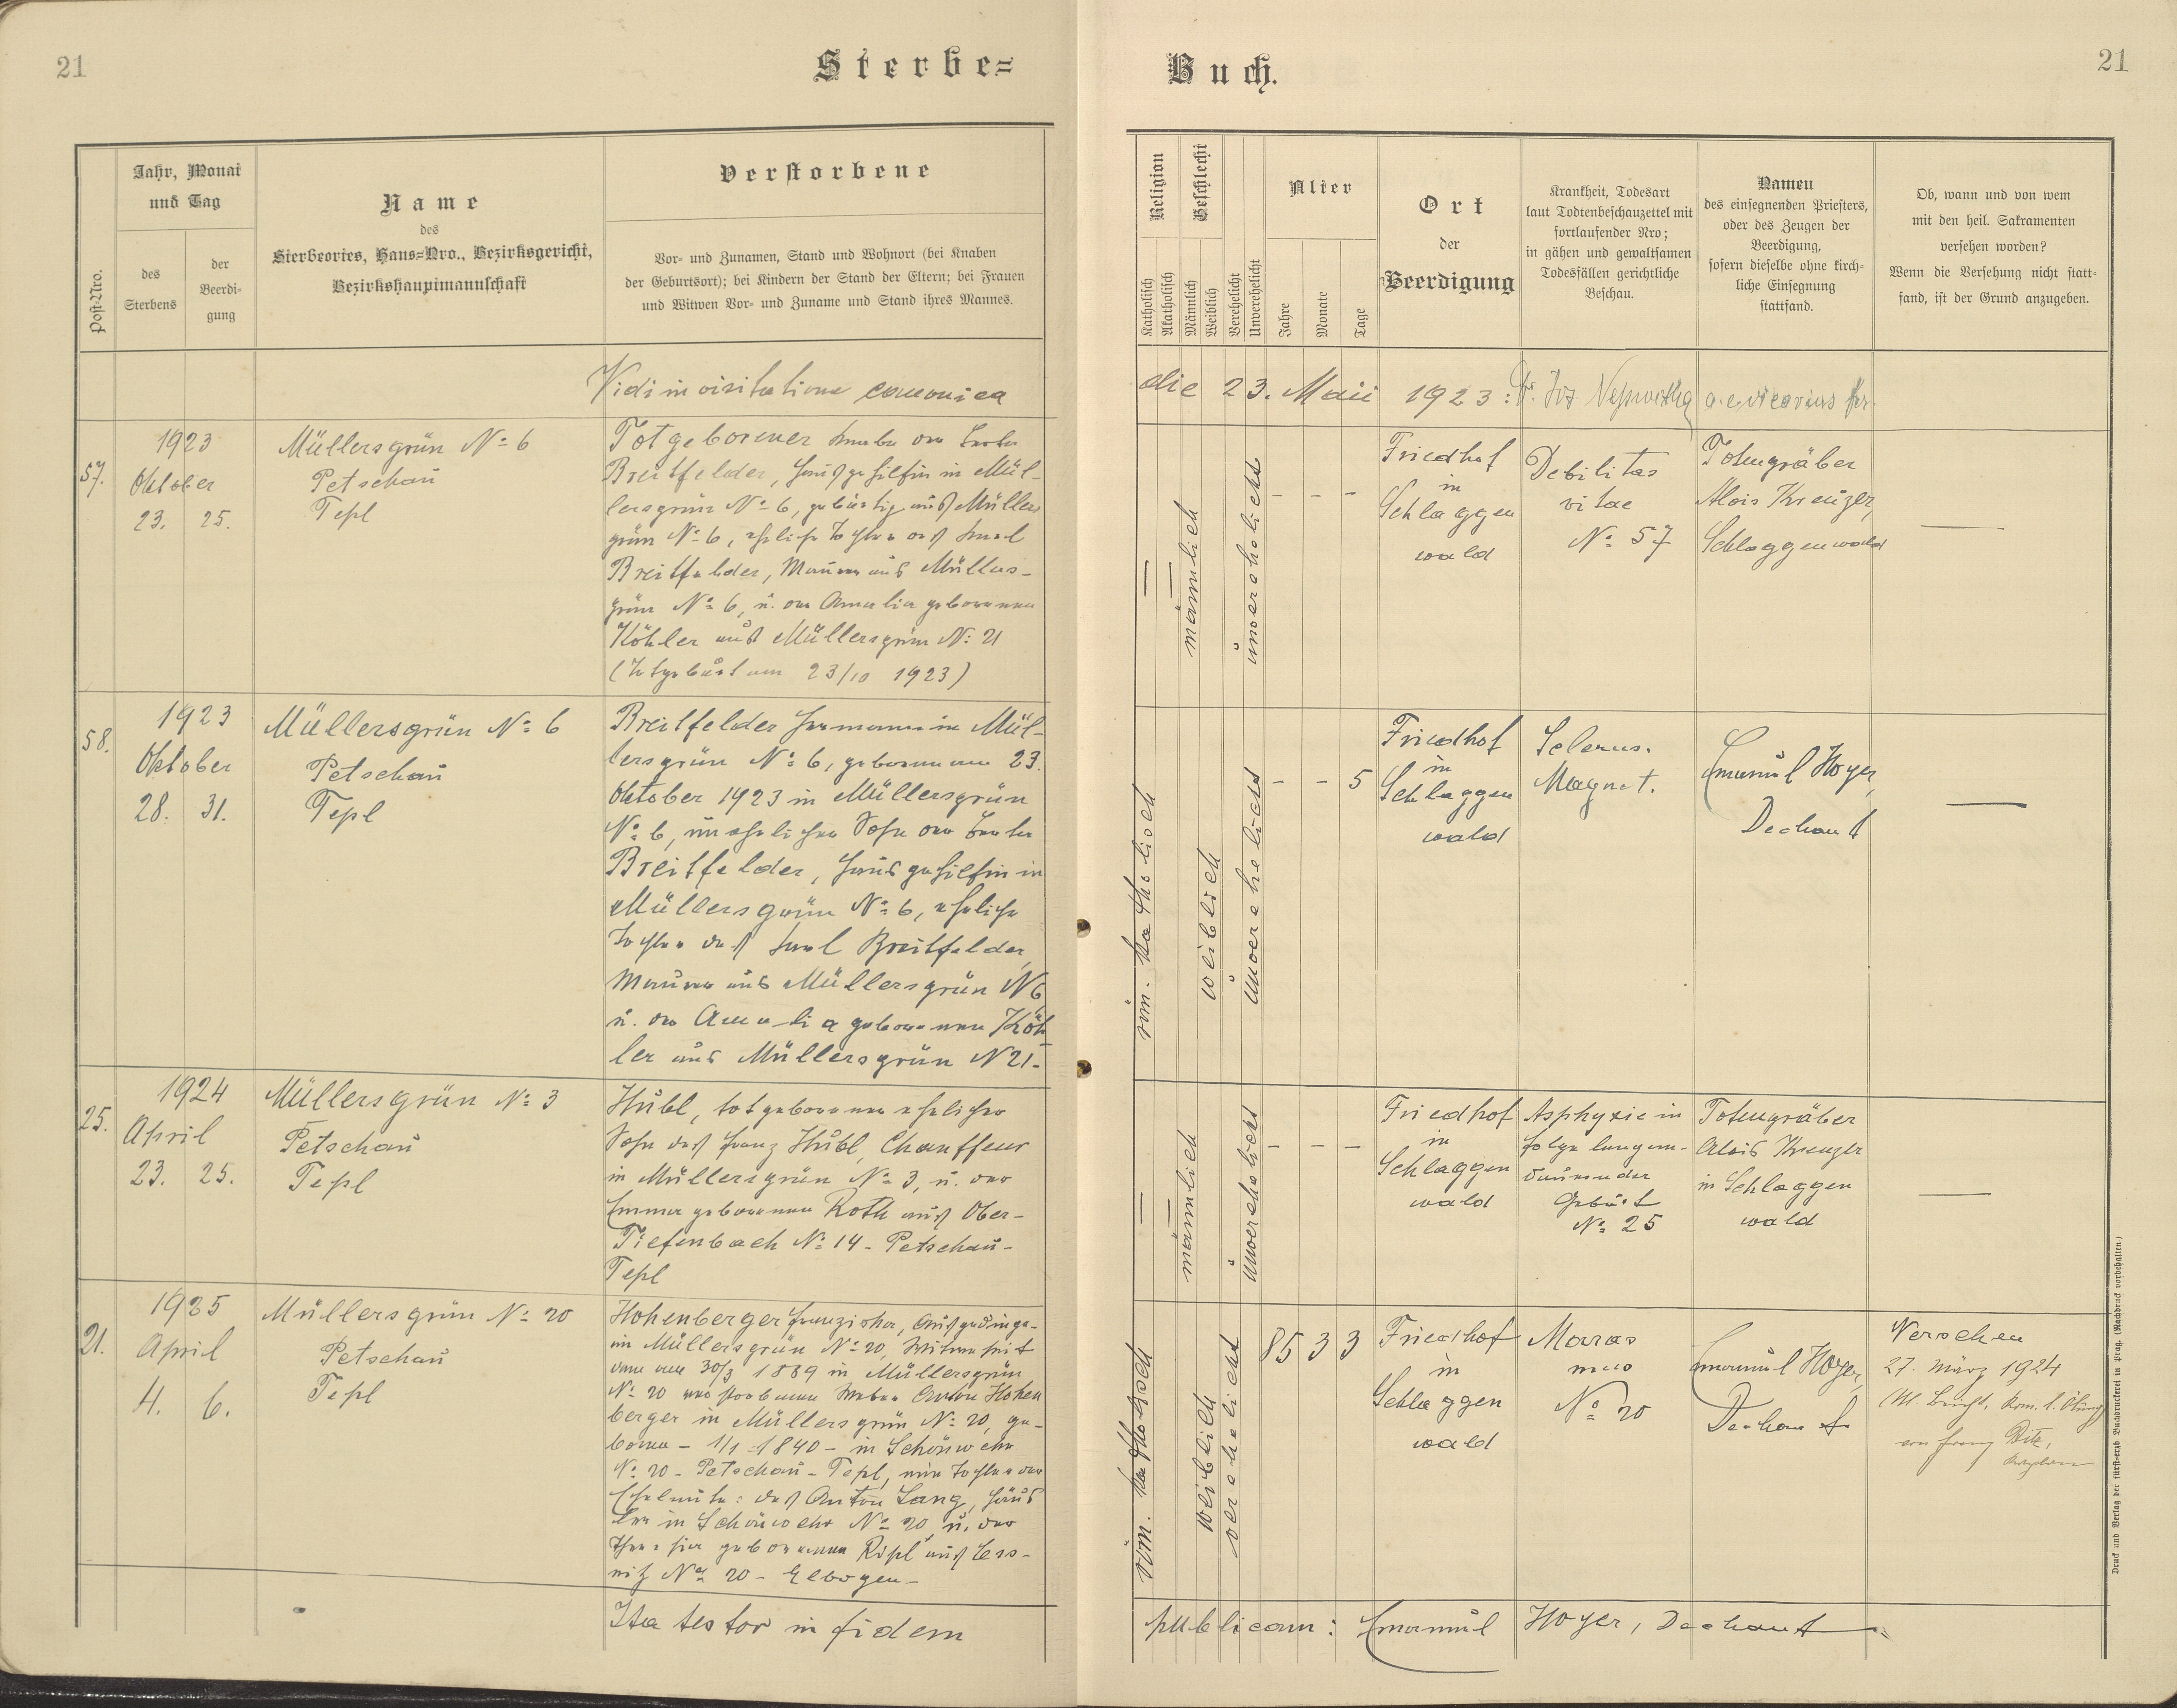 21
Sterbe=
Jahr, Monat
und Tag
Post-Nro.
des
Sterbens
der
Beerdi-
gung
Name
des
Sterbeortes, Haus=Nro., Bezirksgericht,
Bezirkshauptmannschaft
Verstorbene
Vor- und Zunamen, Stand und Wohnort (bei Knaben
der Geburtsort); bei Kindern der Stand der Eltern; bei Frauen
und Witwen Vor- und Zuname und Stand ihres Mannes.
Vidi in visitatione canonica
57.
1923
Oktober
23. 25.
Müllersgrün № 6
Petschau
Tepl
Totgeborener Knabe der Berta
Breitfelder, Hausgehilfin in Mül-
lersgrün № 6, gebürtig aus Müllers
grün № 6, eheliche Tochter des Karl
Breitfelder, Maurer aus Müllers-
grün № 6, u. der Amalia geborenen
Köhler aus Müllersgrün № 21
(Totgeburt am 23/10 1923)
58.
1923
Oktober
28. 31.
Müllersgrün № 6
Petschau
Tepl
Breitfelder Hermann in Mül-
lersgrün № 6, geboren am 23.
Oktober 1923 in Müllersgrün
№ 6, unehelicher Sohn der Berta
Breitfelder, Hausgehilfin in
Müllersgrün № 6, eheliche
Tochter des Karl Breitfelder,
Maurer aus Müllersgrün N 6
u. der Amalia geborenen Köh
ler aus Müllersgrün N 21.
25.
1924
April
23. 25.
Müllersgrün № 3
Petschau
Tepl
Hübl, totgeborener ehelicher
Sohn des Franz Hübl, Chauffeur
in Müllersgrün № 3, u. der
Emma geborenen Roth aus Ober-
Tiefenbach № 14 - Petschau -
Tepl
21.
1925
April
4. 6.
Müllersgrün № 20
Petschau
Tepl
Hohenberger Franziska, Ausgedinge-
in Müllersgrün № 20, Witwe seit
dem am 30/3 1889 in Müllersgrün
№ 20 verstorbenen Weber Anton Hohen
berger in Müllersgrün № 20, ge-
boren - 1/1 1840 - in Schönwehr
№ 20 - Petschau - Tepl, eine Tochter der
Eheleute: des Anton Lang, Häus
ler in Schönwehr № 20, u. der
Theresia geborenen Ripl aus Less-
nitz № 20 - Elbogen -
Ita testor in fidem
Buch.
21
Religion
Geschlecht
Katholisch
Akatholisch
Männlich
Weiblich
Verehelicht
Unverehelicht
Alter
Jahre
Monate
Tage
Ort
der
Beerdigung
Krankheit, Todesart
laut Todtenbeschauzettel mit
fortlaufender Nro;
in gähen und gewaltsamen
Todesfällen gerichtliche
Beschau.
Namen
des einsegnenden Priesters,
oder des Zeugen der
Beerdigung,
sofern dieselbe ohne kirch-
liche Einsegnung
stattfand.
Ob, wann und von wem
mit den heil. Sakramenten
versehen worden?
Wenn die Versehung nicht statt-
fand, ist der Grund anzugeben.
die 23. Maii 1923:
männlich
unverehelicht
- - -
Friedhof
in
Schlaggen
wald
Debilitas
vitae
№ 57
Totengräber
Alois Kreuzer,
Schlaggenwald
röm. katholisch
weiblich
unverehelicht
- - 5
Friedhof
in
Schlaggen
wald
Sclerus.
Magnet.
Emanuel Hoyer,
Dechant
männlich
unverehelicht
- - -
Friedhof
in
Schlaggen
wald
Asphyxie in
folge langan-
dauernder
Geburt
№ 25
Totengräber
Alois Kreuzer
in Schlaggen
wald
röm. katholisch
weiblich
verehelicht
85 3 3
Friedhof
in
Schlaggen
wald
Maras
mus
№ 20
Emanuel Hoyer,
Dechant
Versehen
27. März 1924
von Franz
publicam: Emanuel Hoyer, Dechant
Druck und Verlag der fürst-erzb. Buchdruckerei in Prag. (Nachdruck vorbehalten.)